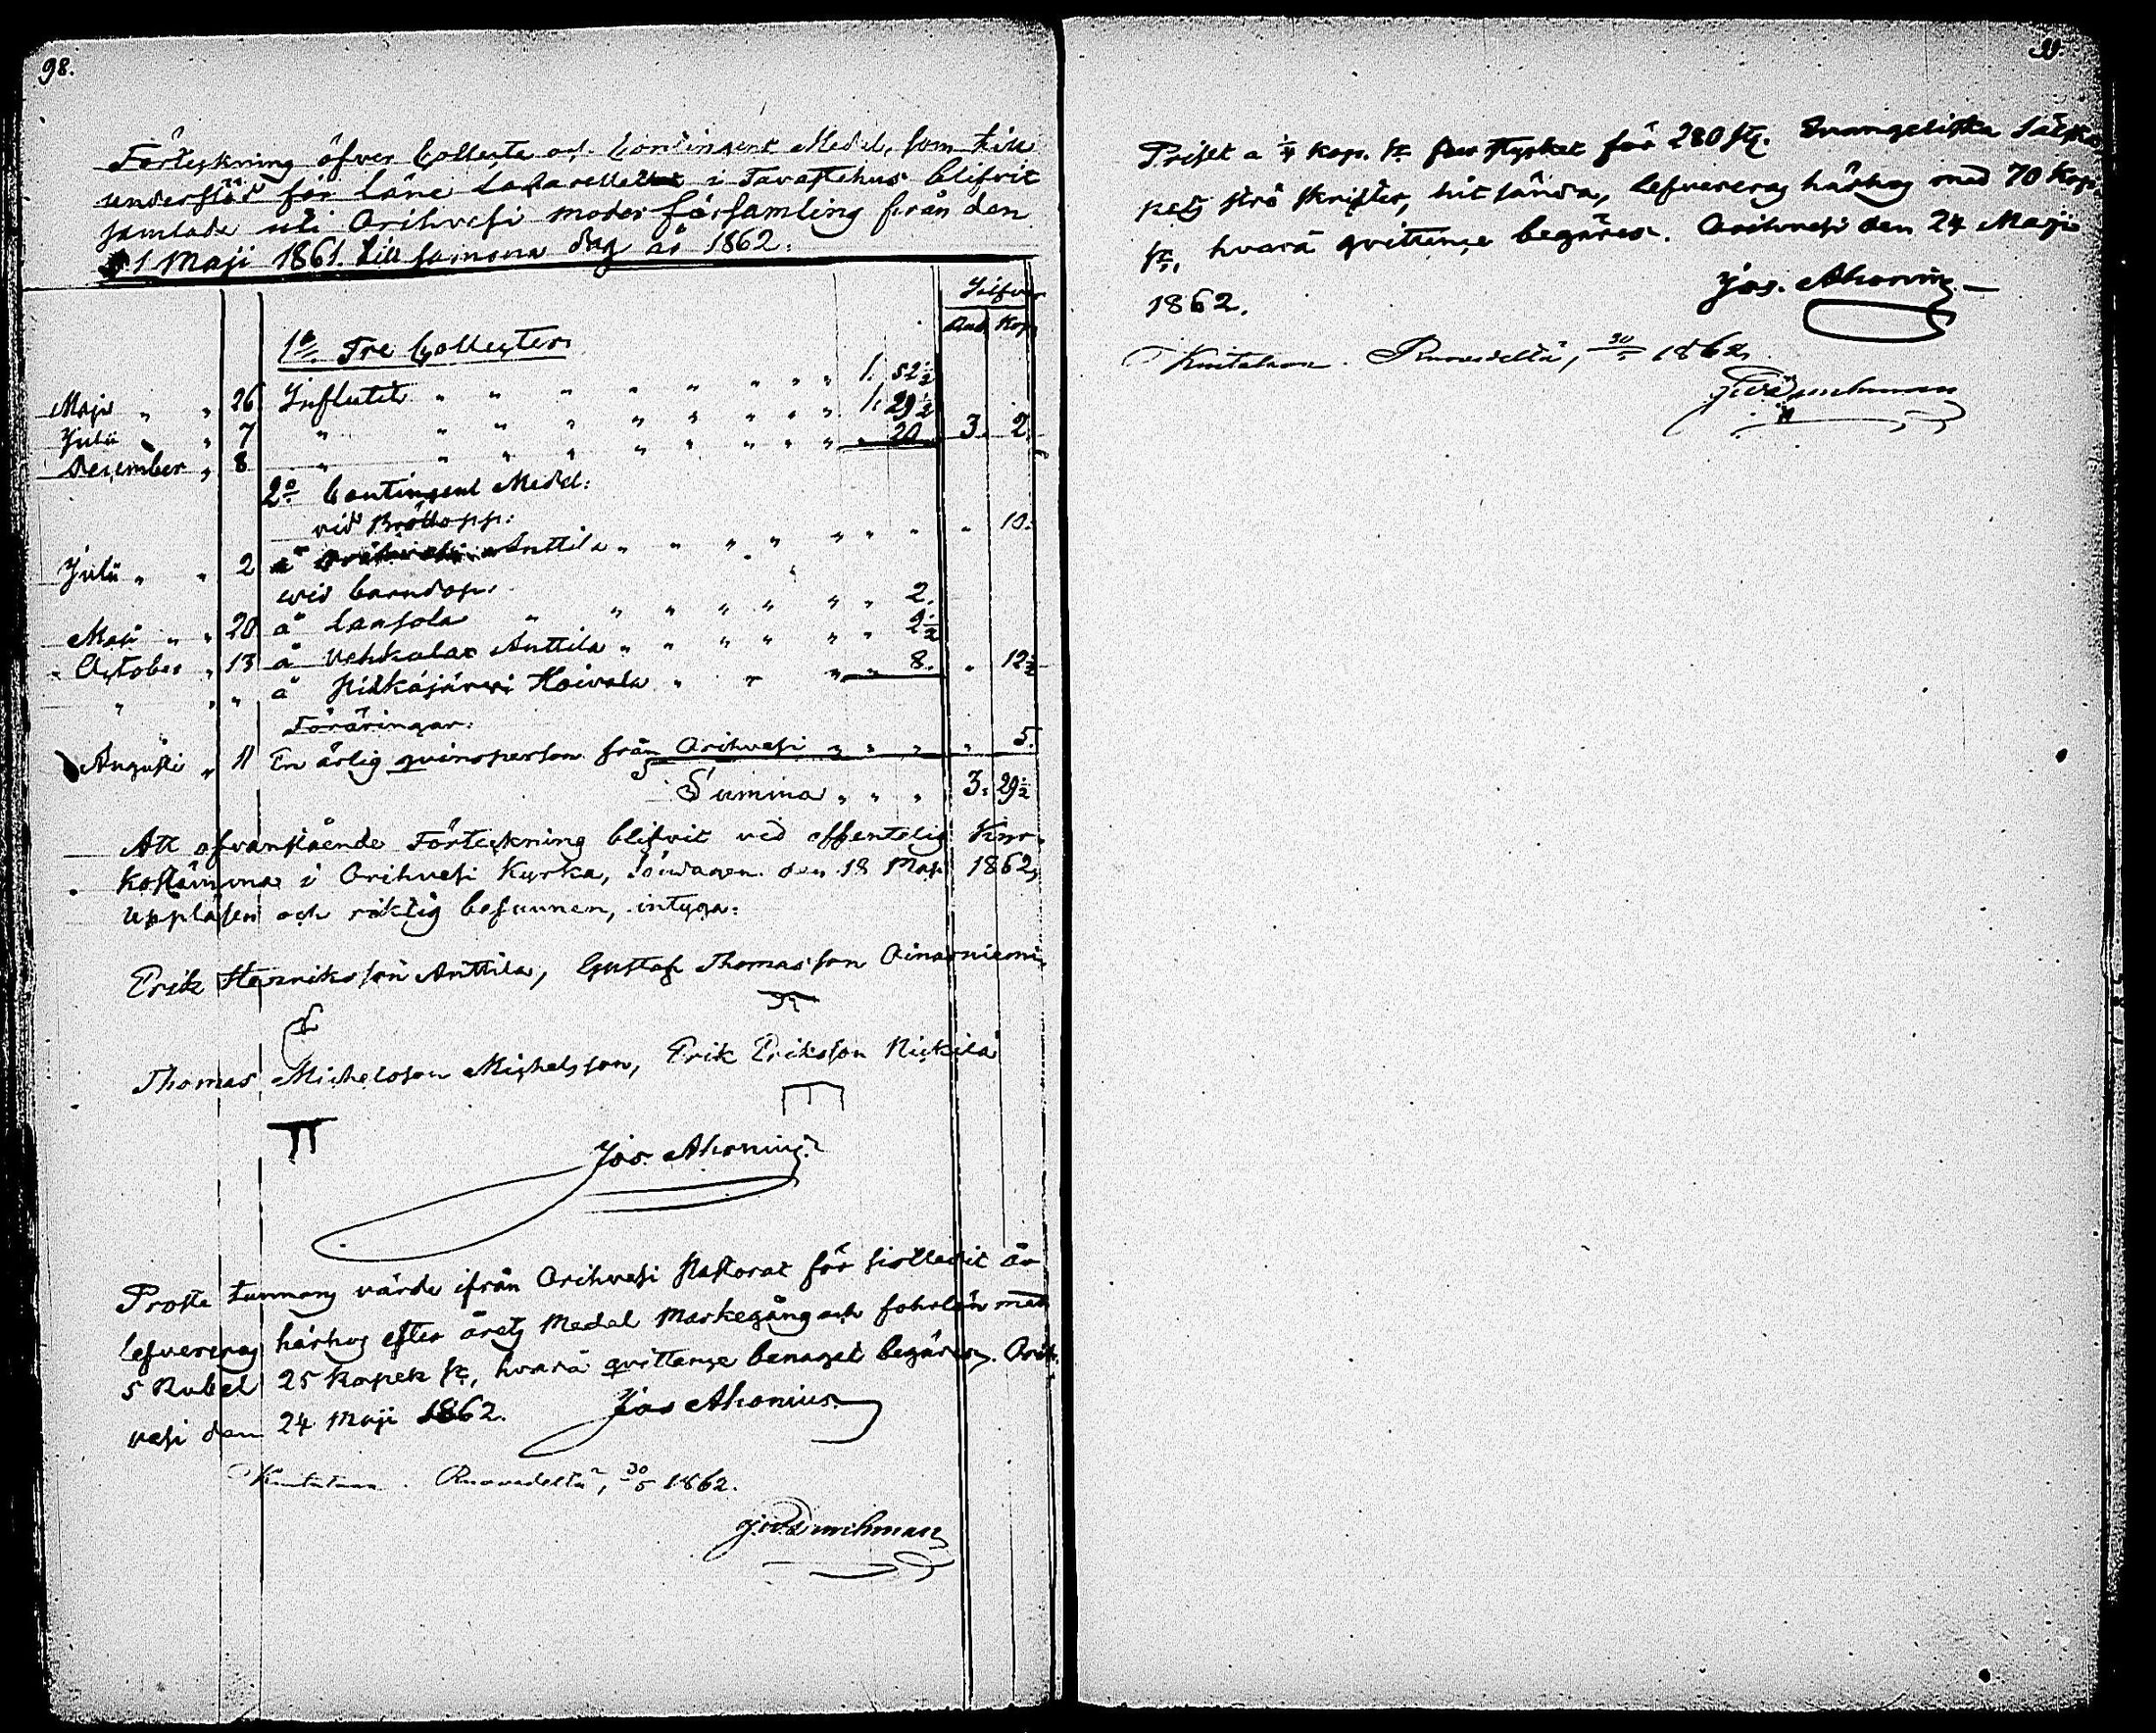 98.
Förteckning öfver Collecte och Contingent Medel, som till
understöd för Läne Lazarettet i Tavastehus blifvit
samlade uti Orihvesi moder församling från den
1 Maji 1861. till samma dag år 1862.
Silfver
Rub. Kop.
1o Tre Collecter
Maji " " 26 Influtit " " " " " " " " 1. 52½
Julii " 7 " " " " " " " " " 1. 29½
December " 8 " " " " " " " " " " 20. 3. 2.
2o Contingent Medel:
vid Bröllopp:
Julii " " 2 å Anttila " " " " " " " " 10.
wid barndop:
Maji " " 20 å Lansola " " " " " " " 2.
" October " 13 å Vehkalax Anttila " " " " " " 2½
" " " å Pitkäjärwi Koivula " " " " 8. " 12½
Föräringar:
Augusti " 11 En ärlig qvinsperson från Orihvesi " " " " 5.
Summa " " " 3. 29½
Att ofvanstående Förteckning blifvit vid offentelig Kyr-
kostämma i Orihvesi Kyrka, Söndagen den 18 Maji 1862,
uppläsen och riktig befunnen, intyga:
Erik Henriksson Anttila, Gustaf Thomasson Oinasniemi
Thomas Michelsson Michelsson, Erik Eriksson Nickilä
Jos. Ahonius
Proste tunnans värde ifrån Orihvesi Pastorat för sistledit år
lefvereras härhos efter årets Medel Markegång och forlön med
5 Rubel 25 kopek Sr, hvarå qvittence benäget begäres. Orih-
vesi den 24 Maji 1862. Jos Ahonius
Kuitataan. Ruovedeltä, 30/5 1862.
99.
Priset a ¼ kop. Sr per stycket för 280 st. Evangeliska Sälska-
pets strö skrifter, hit sända, lefvereras härhos med 70 Kop.
Sr, hvarå qvittence begäres. Orihvesi den 24 Maji
1862.
Jos. Ahonius
Kuitataan. Ruovedeltä, 30/5 1862.